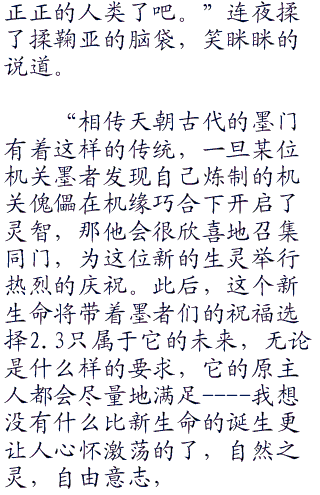 正正的人类了吧。”连夜揉
了揉鞠亚的脑袋，笑眯眯的
说道。
“相传天朝古代的墨门
有着这样的传统，一旦某位
机关墨者发现自己炼制的机
关傀儡在机缘巧合下开启了
灵智，那他会很欣喜地召集
同门，为这位新的生灵举行
热烈的庆祝。此后，这个新
生命将带着墨者们的祝福选
择2.3只属于它的未来，无论
是什么样的要求，它的原主
人都会尽量地满足----我想
没有什么比新生命的诞生更
让人心怀激荡的了，自然之
灵，自由意志，